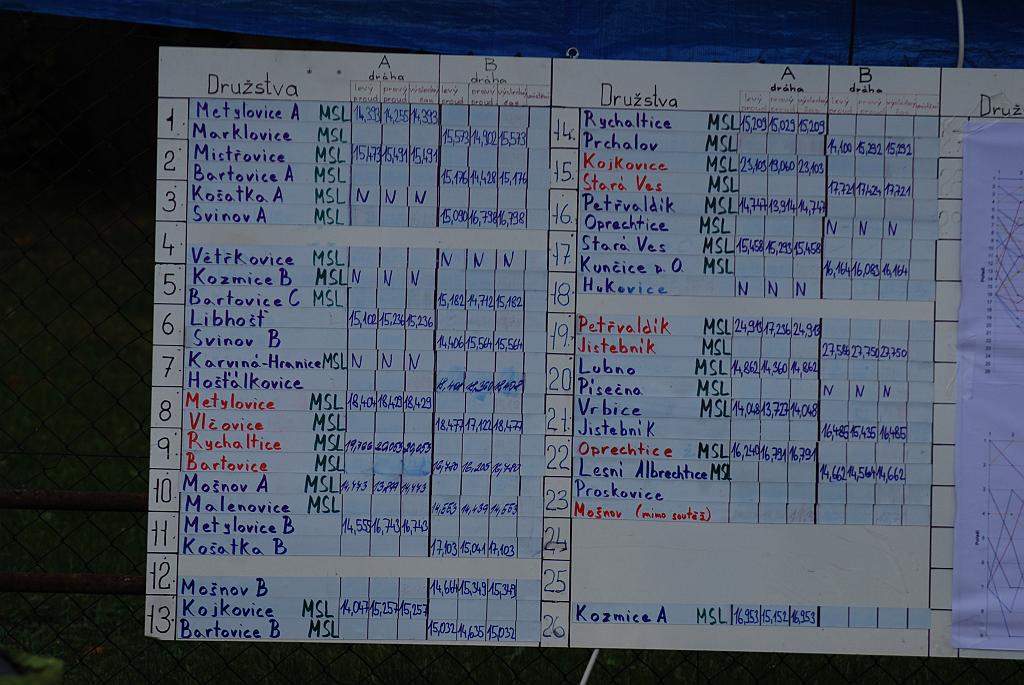 A B
dráha dráha
Družstva levý proud pravý proud výsledný čas levý proud pravý proud výsledný čas
1 Metylovice A MSL 14,393 14,255 14,393
Marklovice MSL 15,573 14,902 15,573
2 Mistřovice MSL 15,473 15,491 15,491
Bartovice A MSL 15,176 14,428 15,176
3 Košatka A MSL N N N
Svinov A MSL 15,090 16,798 16,798
4
Větřkovice MSL N N N
5 Kozmice B MSL N N N
Bartovice C MSL 15,182 14,712 15,182
6 Libhošť 15,102 15,236 15,236
Svinov B MSL 14,406 15,564 15,564
7 Karviná-Hranice MSL N N N
Hošťálkovice
8 Metylovice MSL 18,404 18,429 18,429
Vlčovice MSL 18,477 17,122 18,477
9 Rychaltice MSL
Bartovice MSL
10 Mošnov A MSL
Malenovice MSL
11 Metylovice B 14,555 16,743 16,743
Košatka B 17,103 15,041 17,103
12
Mošnov B 14,664 15,349 15,349
13 Kojkovice MSL 14,047 15,257 15,257
Bartovice B MSL 15,032 14,635 15,032
A B
dráha dráha
Družstva levý proud pravý proud výsledný čas levý proud pravý proud výsledný čas
14 Rychaltice MSL 15,209 15,029 15,209
Prchalov MSL 14,100 15,292 15,292
15 Kojkovice MSL 23,103 19,060 23,103
Stará Ves MSL 17,721 17,424 17,721
16 Petřvaldík MSL 14,747 13,914 14,747
Oprechtice MSL N N N
17 Stará Ves MSL 15,458 15,293 15,458
Kunčice p. O. MSL 16,164 16,083 16,164
18 Hukovice N N N
19 Petřvaldík MSL 24,919 17,236 24,919
Jistebník MSL 27,586 27,750 27,750
20 Lubno MSL 14,862 14,360 14,862
Písečna MSL N N N
21 Vrbice MSL 14,048 13,727 14,048
Jistebník 16,485 15,435 16,485
22 Oprechtice MSL 16,240 16,791 16,791
Lesní Albrechtice MSL 14,662 14,564 14,662
23 Proskovice
Mošnov (mimo soutěž)
24
25
26 Kozmice A MSL 16,953 15,152 16,953
Druž